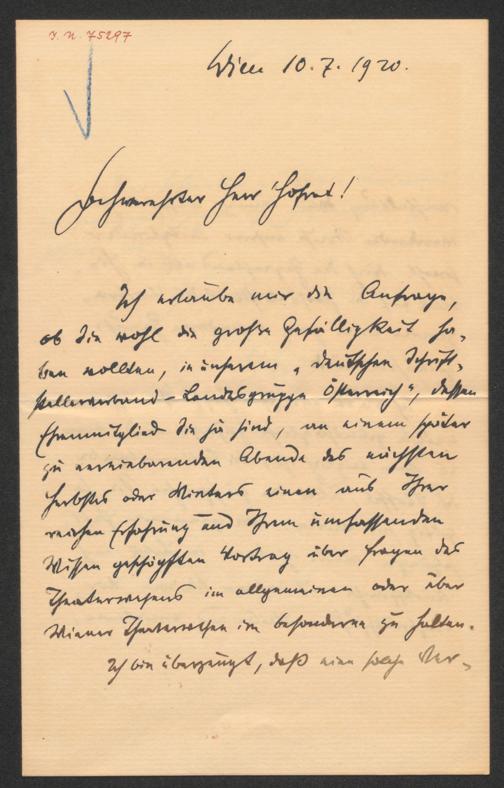 J. N. 75297
Wien 10. 7. 1920.
Hochverehrter Herr Hofrat!
Ich erlaube mir die Anfrage,
ob Sie wohl die große Gefälligkeit ha-
ben wollten, in unserem „deutschen Schrift-
stellerverband - Landesgruppe Österreich", dessen
Ehrenmitglied Sie ja sind, an einem später
zu vereinbarenden Abende des nächsten
Herbstes oder Winters einen aus Ihrer
reichen Erfahrung und Ihrem umfassenden
Wissen geschöpften Vortrag über Fragen des
Theaterwesens im allgemeinen oder über
Wiener Theaterwesen im besonderen zu halten.
Ich bin überzeugt, daß eine solche Ver-